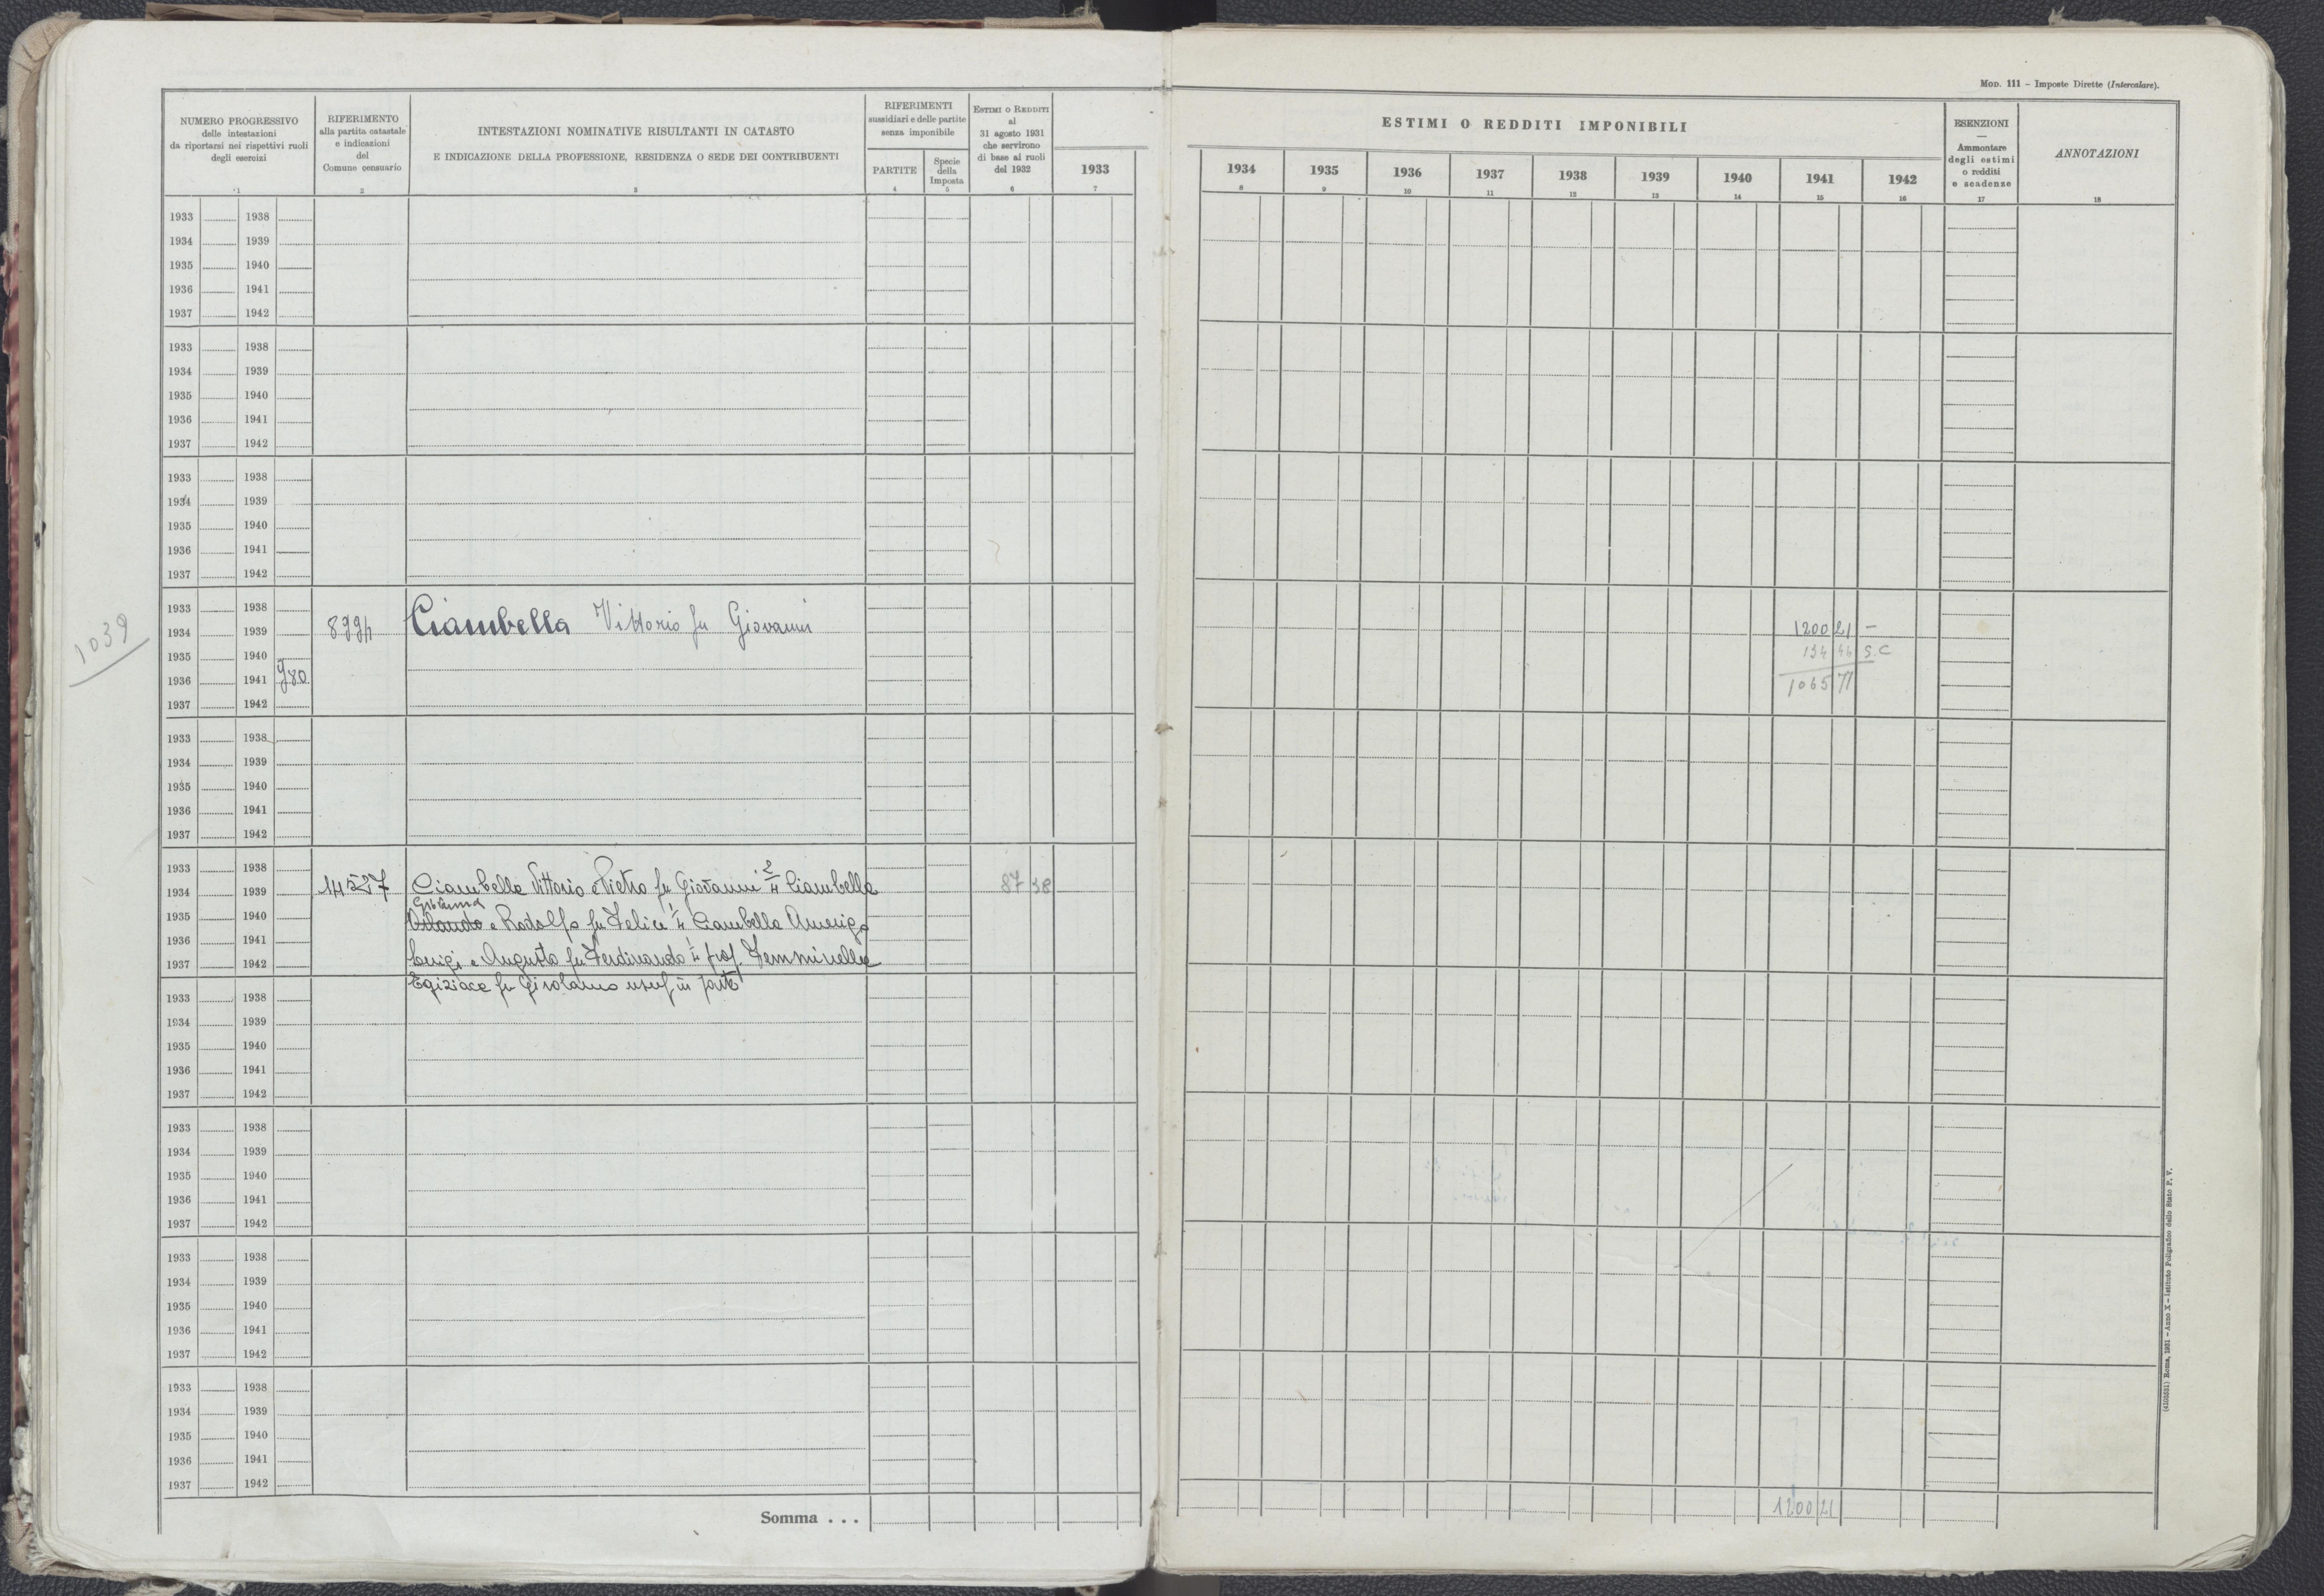 Mod. 111 – Imposte Dirette (Intercalare).
NUMERO PROGRESSIVO
delle intestazioni
da riportarsi nei rispettivi ruoli
degli esercizi
1
RIFERIMENTO
alla partita catastale
e indicazioni
del
Comune censuario
2
INTESTAZIONI NOMINATIVE RISULTANTI IN CATASTO
E INDICAZIONE DELLA PROFESSIONE, RESIDENZA O SEDE DEI CONTRIBUENTI
3
RIFERIMENTI
sussidiari e delle partite
senza imponibile
PARTITE
4
Specie
della
Imposta
5
Estimi o Redditi
al
31 agosto 1931
che servirono
di base ai ruoli
del 1932
6
1933
7
ESTIMI O REDDITI IMPONIBILI
1934 1935 1936 1937 1938 1939 1940 1941 1942
8 9 10 11 12 13 14 15 16
ESENZIONI
—
Ammontare
degli estimi
o redditi
e scadenze
17
ANNOTAZIONI
18
1933 1938
1934 1939
1935 1940
1936 1941
1937 1942
1933 1938
1934 1939
1935 1940
1936 1941
1937 1942
1933 1938
1934 1939
1935 1940
1936 1941
1937 1942
1039
1933 1938
1934 1939 8994 Ciambella Vittorio fu Giovanni 1200 21 –
1935 1940 134 44 S.C
1936 1941 980 1065 77
1937 1942
1933 1938
1934 1939
1935 1940
1936 1941
1937 1942
1933 1938
1934 1939 14527 Ciambella Vittorio e Pietro fu Giovanni 2/4 Ciambella 87 38
Giovanna
1935 1940 Orlando e Rodolfo fu Felice 1/4 Ciambella Amerigo
1936 1941
1937 1942 Luigi e Augusto fu Ferdinando 1/4 prop. Femminella
Egiziaca fu Girolamo usuf in parte
1933 1938
1934 1939
1935 1940
1936 1941
1937 1942
1933 1938
1934 1939
1935 1940
1936 1941
1937 1942
1933 1938
1934 1939
1935 1940
1936 1941
1937 1942
1933 1938
1934 1939
1935 1940
1936 1941
1937 1942
Somma . . . 1200 21
(4103531) Roma, 1931 – Anno X – Istituto Poligrafico dello Stato P. V.